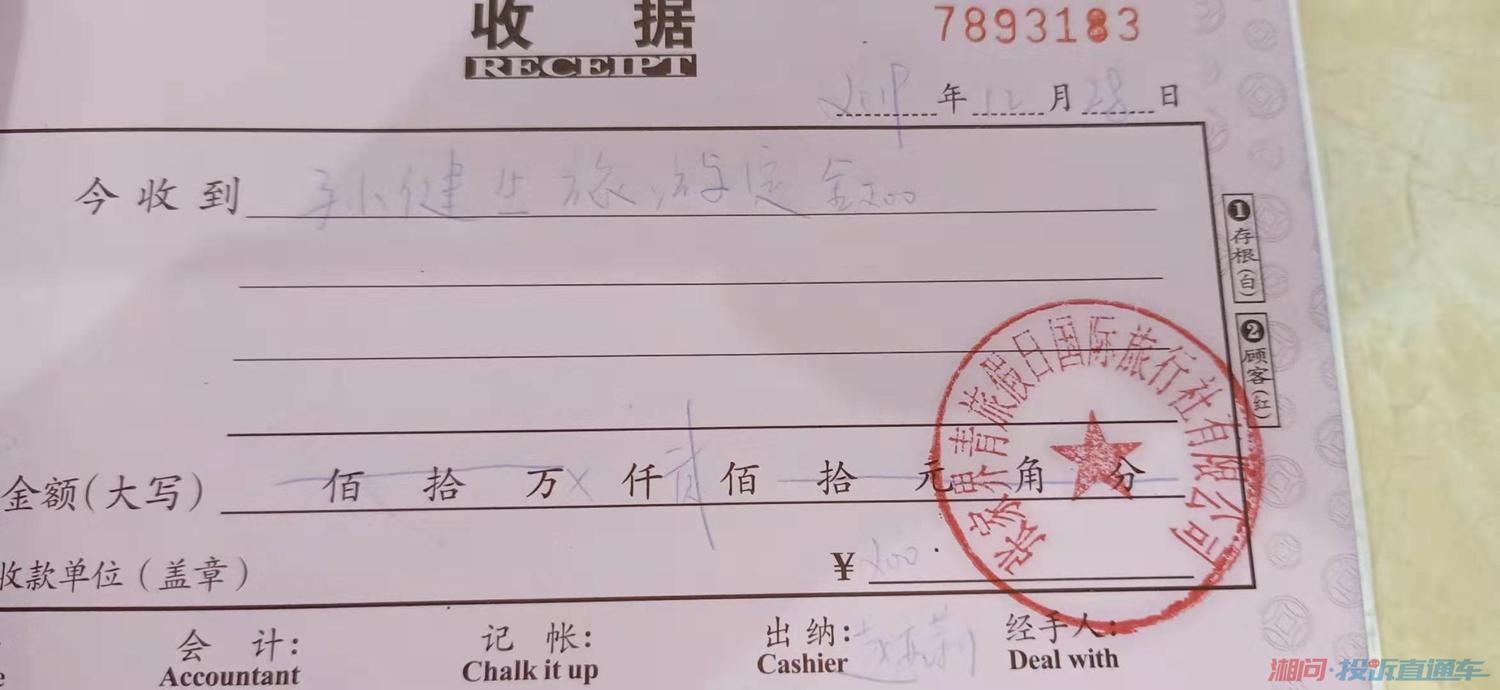 收 据
7893183
RECEIPT
年 12 月 28 日
今收到 孙健生旅游定金200
①存根(白)
②顾客(红)
张家界青旅假日国际旅行社有限公司
金额(大写) 佰 拾 万 × 仟 贰 佰 拾 元 角 分
收款单位(盖章) ¥ 200
会 计: 记 帐: 出 纳: 经手人:
Accountant Chalk it up Cashier Deal with
湘问·投诉直通车